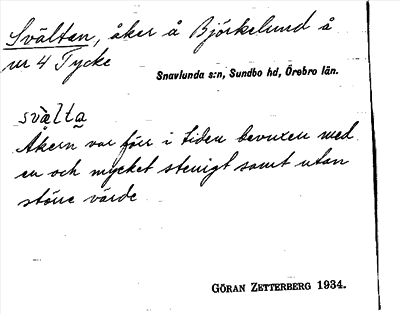 Svältan, åker å Björkelund å
nr 4 Tycke
Snavlunda s:n, Sundbo hd, Örebro län.
svälta
Åkern var förr i tiden bevuxen med
en och mycket stenigt samt utan
större värde
GÖRAN ZETTERBERG 1934.